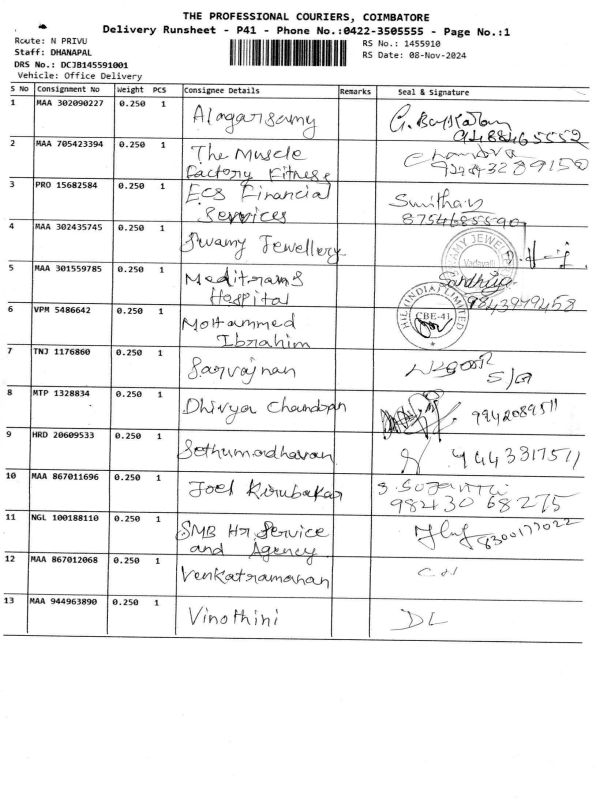 THE PROFESSIONAL COURIERS, COIMBATORE
Delivery Runsheet - P41 - Phone No.:0422-3505555 - Page No.:1
Route: N PRIVU
RS No.: 1455910
Staff: DHANAPAL
RS Date: 08-Nov-2024
DRS No.: DCJB145591001
Vehicle: Office Delivery
S No Consignment No Weight PCS Consignee Details Remarks Seal & Signature
1 MAA 302090227 0.250 1 Alagarsamy
9488465552
2 MAA 705423394 0.250 1 The Muscle
Factory Fitness
3 PRO 15682584 0.250 1 ECS Financial
Services
8754685590
4 MAA 302435745 0.250 1 Swamy Jewellery
SWAMY JEWELLERY
Vadavalli
5 MAA 301559785 0.250 1 Meditrams
Hospital
Sandhiya
9843979458
6 VPM 5486642 0.250 1 Mohammed
Ibrahim
INDIA LIMITED
CBE-41
7 TNJ 1176860 0.250 1 Sarvajnan
8 MTP 1328834 0.250 1 Dhivya Chandran
9942089511
9 HRD 20609533 0.250 1 Sethumadhavan
9443317511
10 MAA 867011696 0.250 1 Joel Kirubakar
98430 68275
11 NGL 100188110 0.250 1 SMB Hr Service
and Agency
8300177022
12 MAA 867012068 0.250 1 Venkatramanan
13 MAA 944963890 0.250 1 Vinothini DL